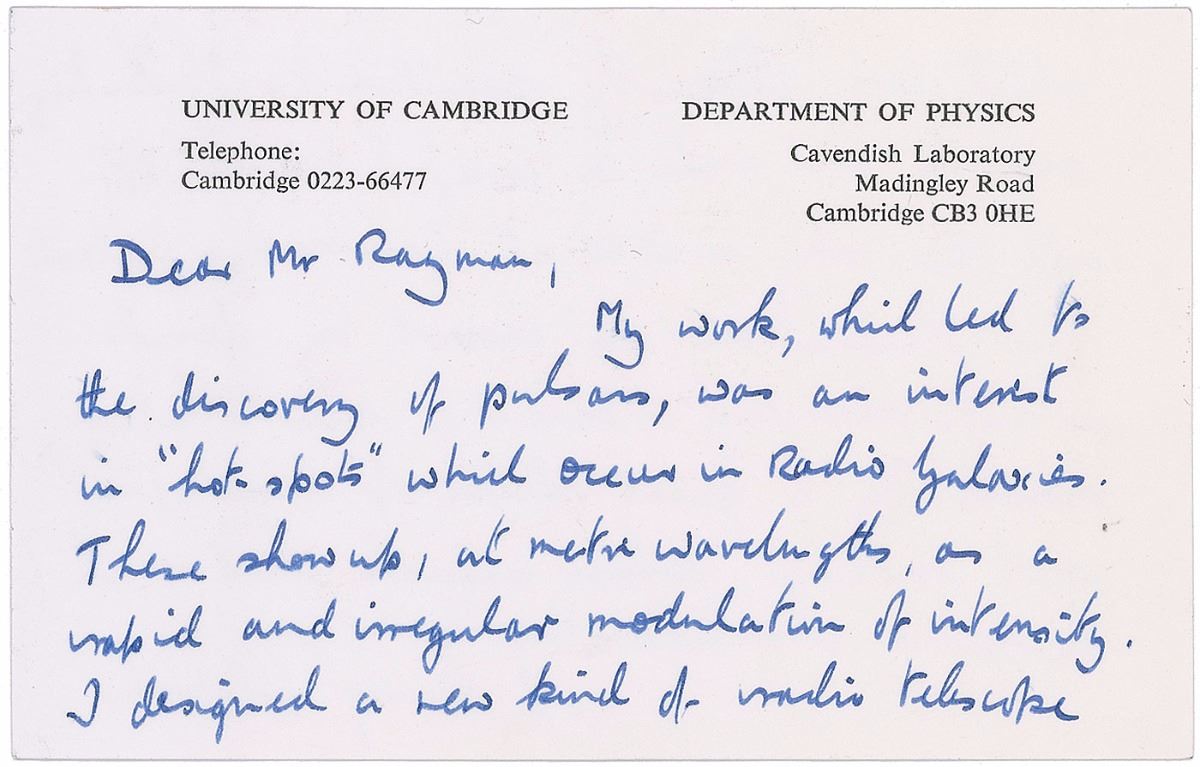 UNIVERSITY OF CAMBRIDGE
DEPARTMENT OF PHYSICS
Telephone:
Cambridge 0223-66477
Cavendish Laboratory
Madingley Road
Cambridge CB3 0HE
Dear Mr Rayman,
My work, which led to
the discovery of pulsars, was an interest
in "hot-spots" which occur in Radio Galaxies.
These show up, at metre wavelengths, as a
rapid and irregular modulation of intensity.
I designed a new kind of radio telescope